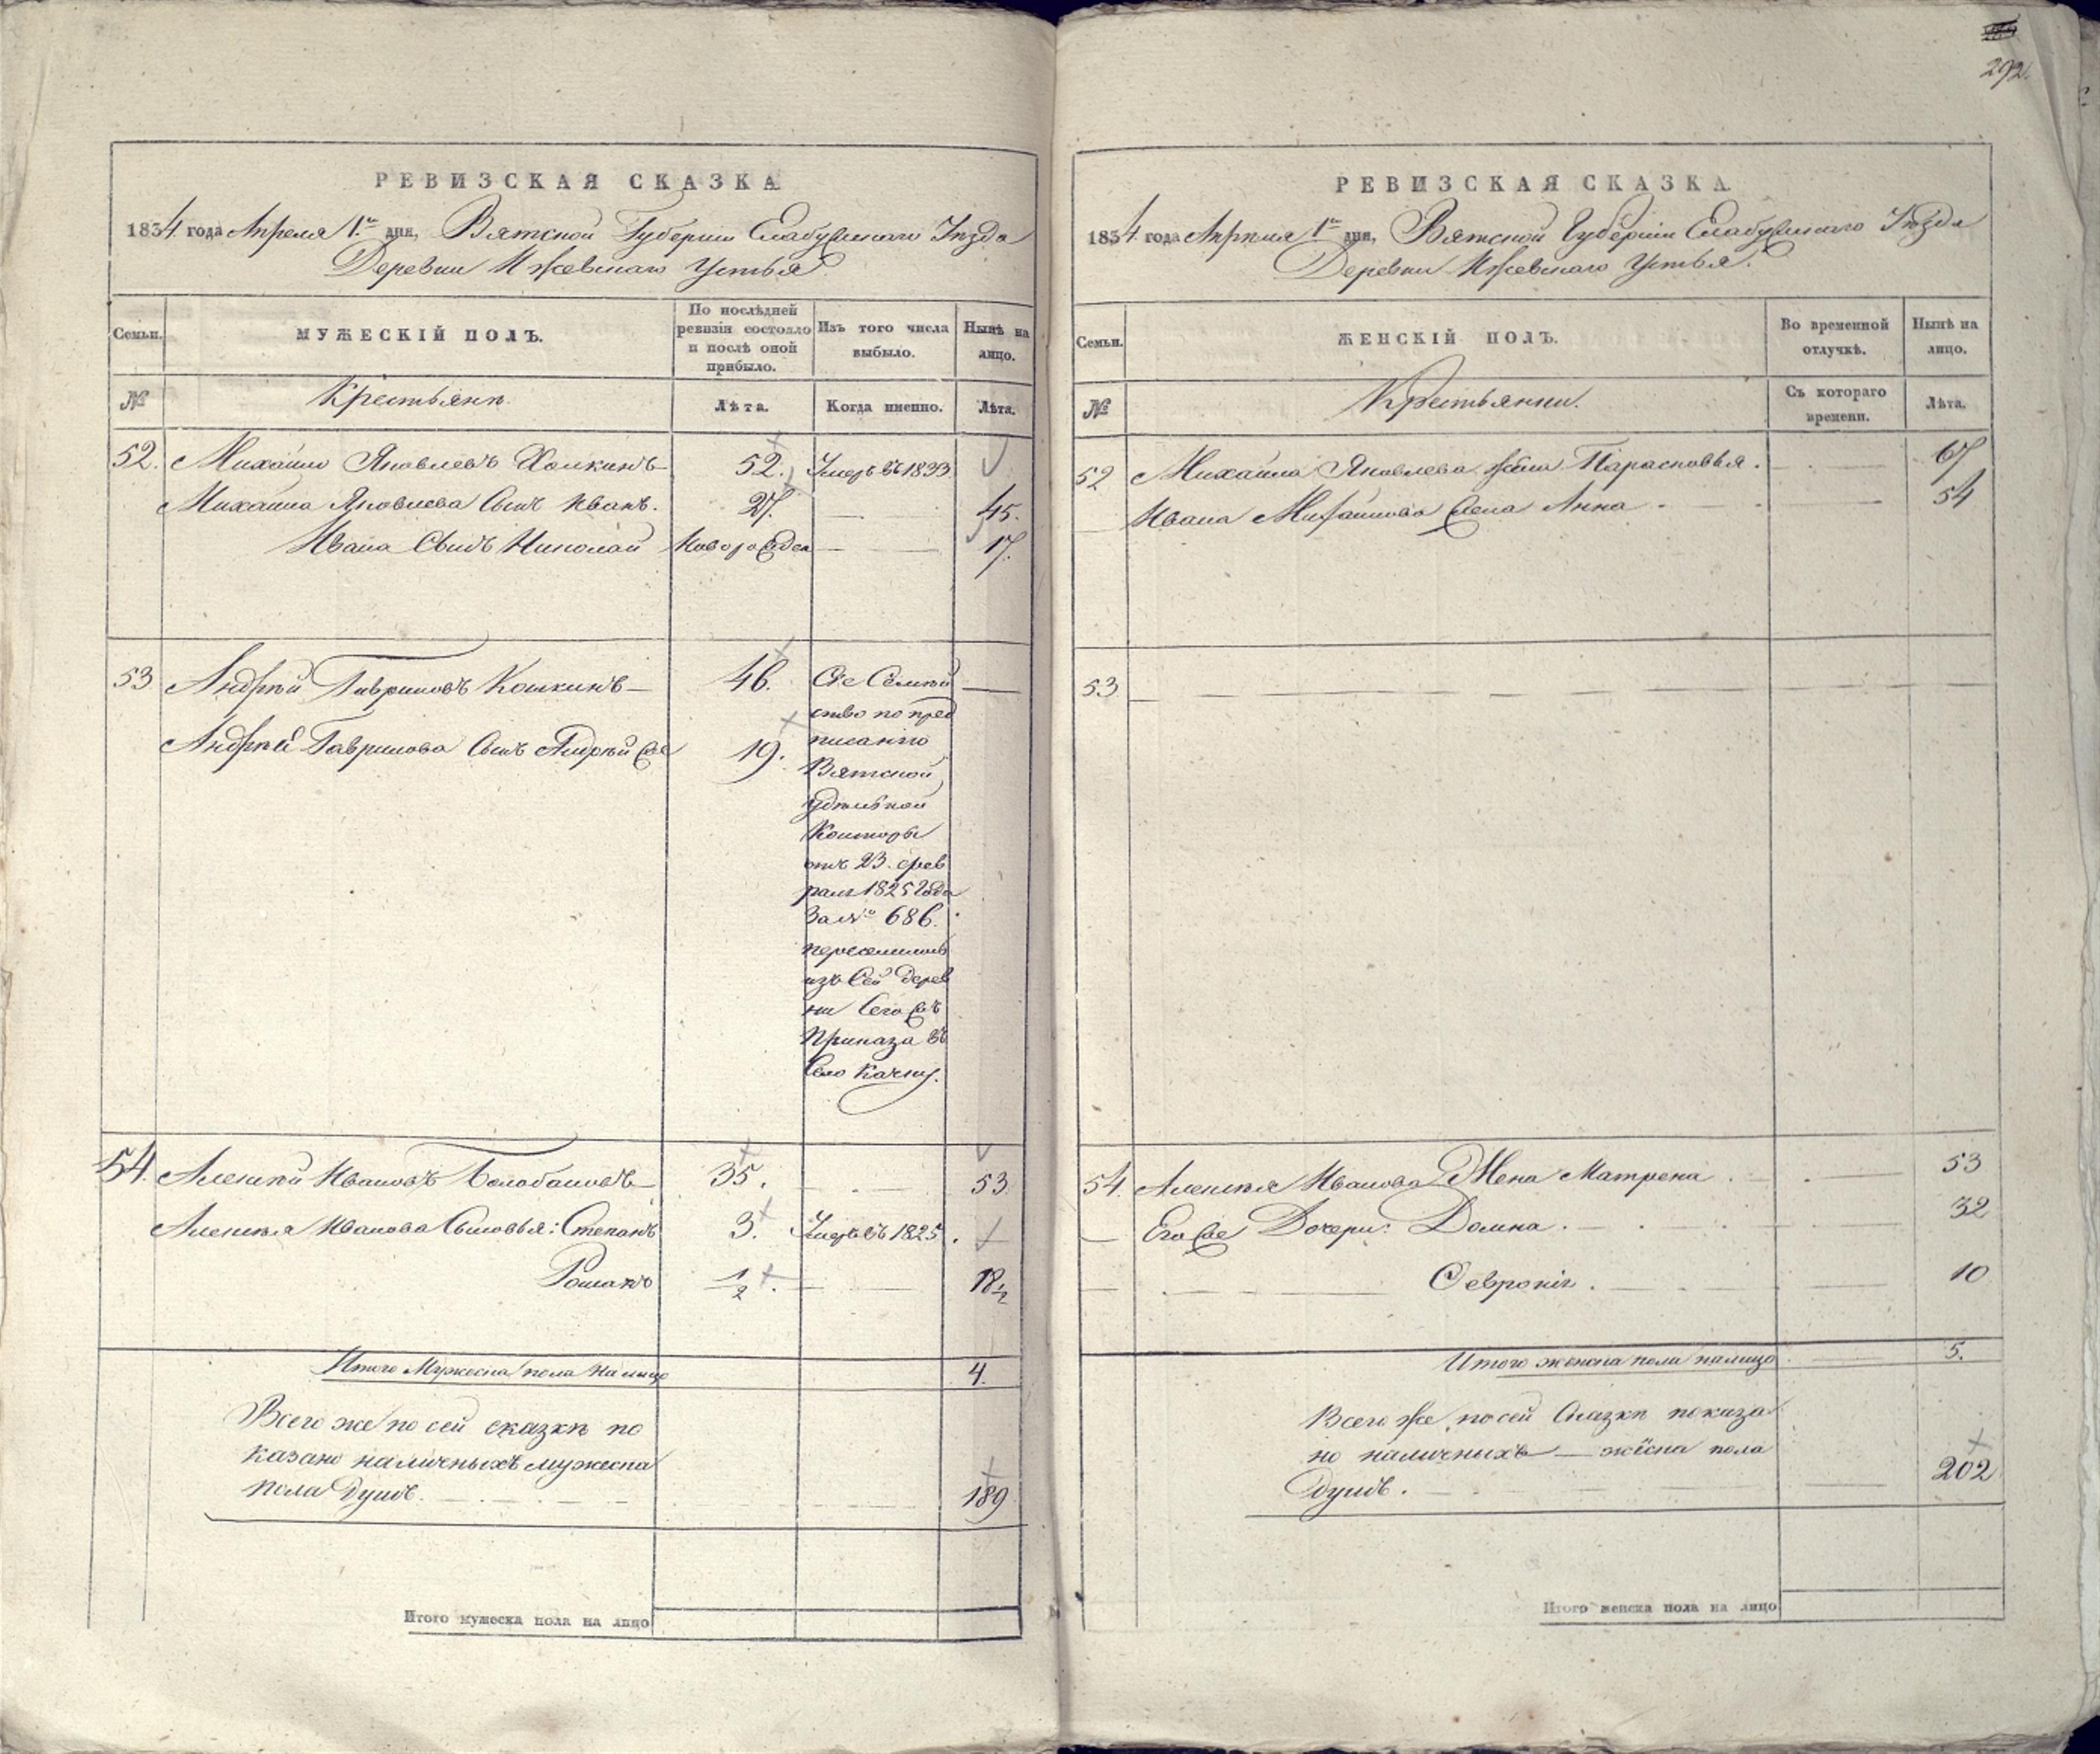 292.
РЕВИЗСКАЯ СКАЗКА
1834 года Апреля 1го дня, Вятской Губернiи Елабужскаго Уѣзда
Деревни Ижевскаго Устья
Семьи. МУЖЕСКІЙ ПОЛЪ. По послѣдней ревизіи состояло и послѣ оной прибыло. Изъ того числа выбыло. Нынѣ на лицо.
№ Крестьянъ. Лѣта. Когда именно. Лѣта.
52. Михайло Яковлевъ Холкинъ 52. Умеръ въ 1833
Михайла Яковлева Сынъ Иванъ. 27. 45.
Ивана Сынъ Николай Новорожден 17.
53 Андрѣй Гавриловъ Кошкинъ 46. Сiе Семей
ство по пред
Андрѣй Гаврилова Сынъ Андрѣй же 19. писанiю
Вятской
удѣльной
Конторы
отъ 23. фев
раля 1825 года
за № 686.
переселилось
изъ сей дерев
ни Сего жъ
Приказа въ
Село Качку.
54. Алексѣй Ивановъ Балобановъ 35. 53
Алексѣя Иванова Сыновья: Степанъ 3. Умеръ въ 1825.
Романъ 1/2. 18 1/2
Итого Мужеска пола на лицо 4.
Всего же по сей сказкѣ по
казано наличныхъ мужеска
пола душъ. 189
Итого мужеска пола на лицо
РЕВИЗСКАЯ СКАЗКА.
1834 года Апрѣля 1го дня, Вятской Губернiи Елабужскаго Уѣзда
Деревни Ижевскаго Устья.
Семьи. ЖЕНСКІЙ ПОЛЪ. Во временной отлучкѣ. Нынѣ на лицо.
№ Крестьянки. Съ котораго времени. Лѣта.
52 Михайла Яковлева жена Парасковья. 67
Ивана Михайлова жена Анна 54
53
54. Алексѣя Иванова Жена Матрена. 53
Его же Дочери: Домна. 32
Февронiя. 10
Итого женска пола на лицо 5.
Всего же по сей Сказкѣ показа
но наличныхъ женска пола
душъ. 202
Итого женска пола на лицо